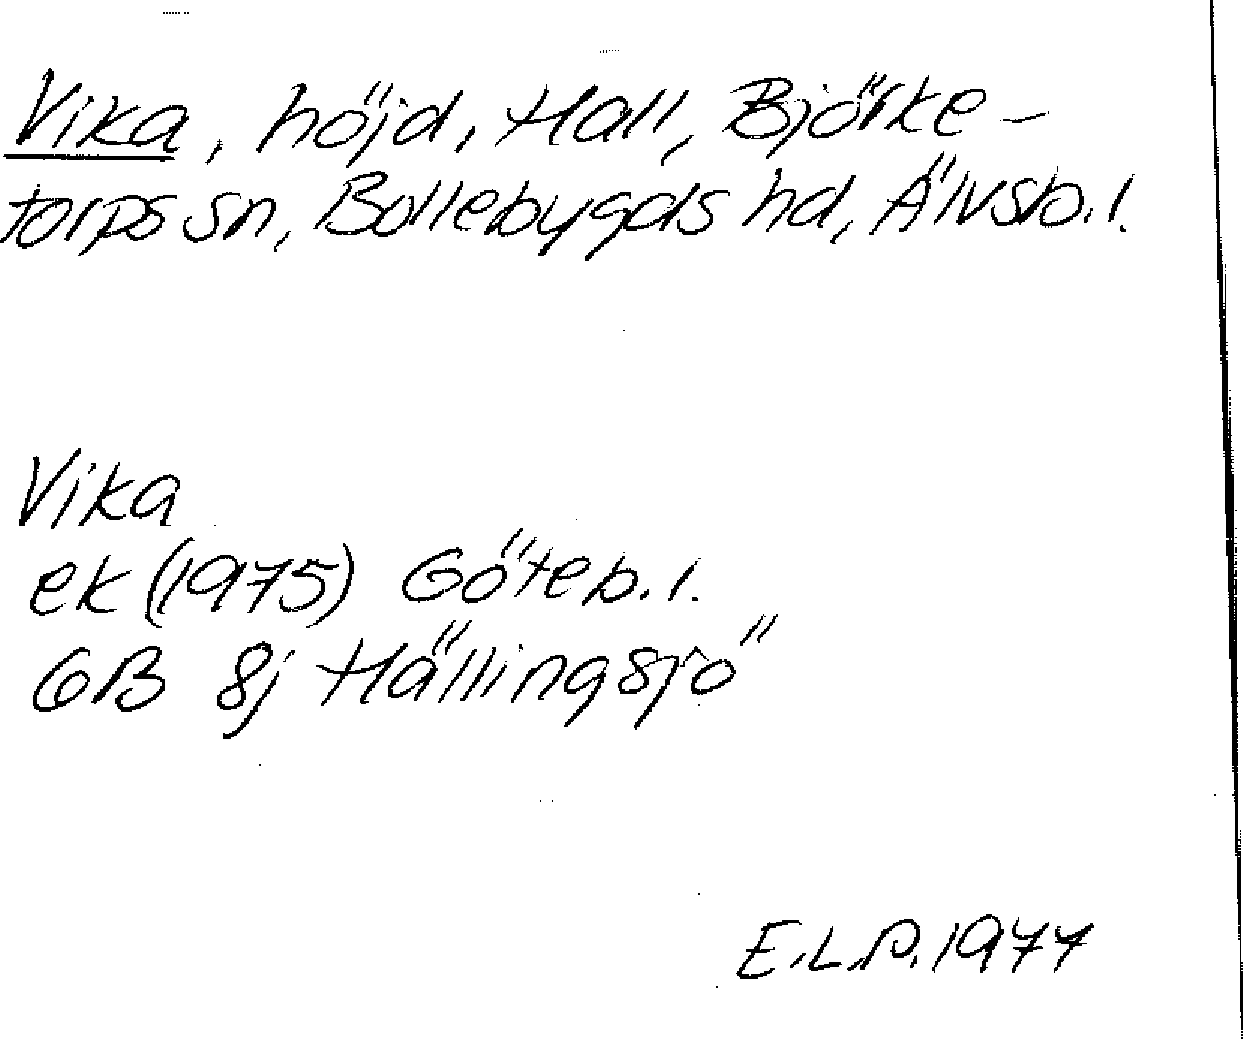 Vika, höjd, Hall, Björke-
torps sn, Bollebygds hd, Älvsb. l.
Vika
ek (1975) Göteb. l.
GB 8j Hällingsjö
E.L.P. 1977